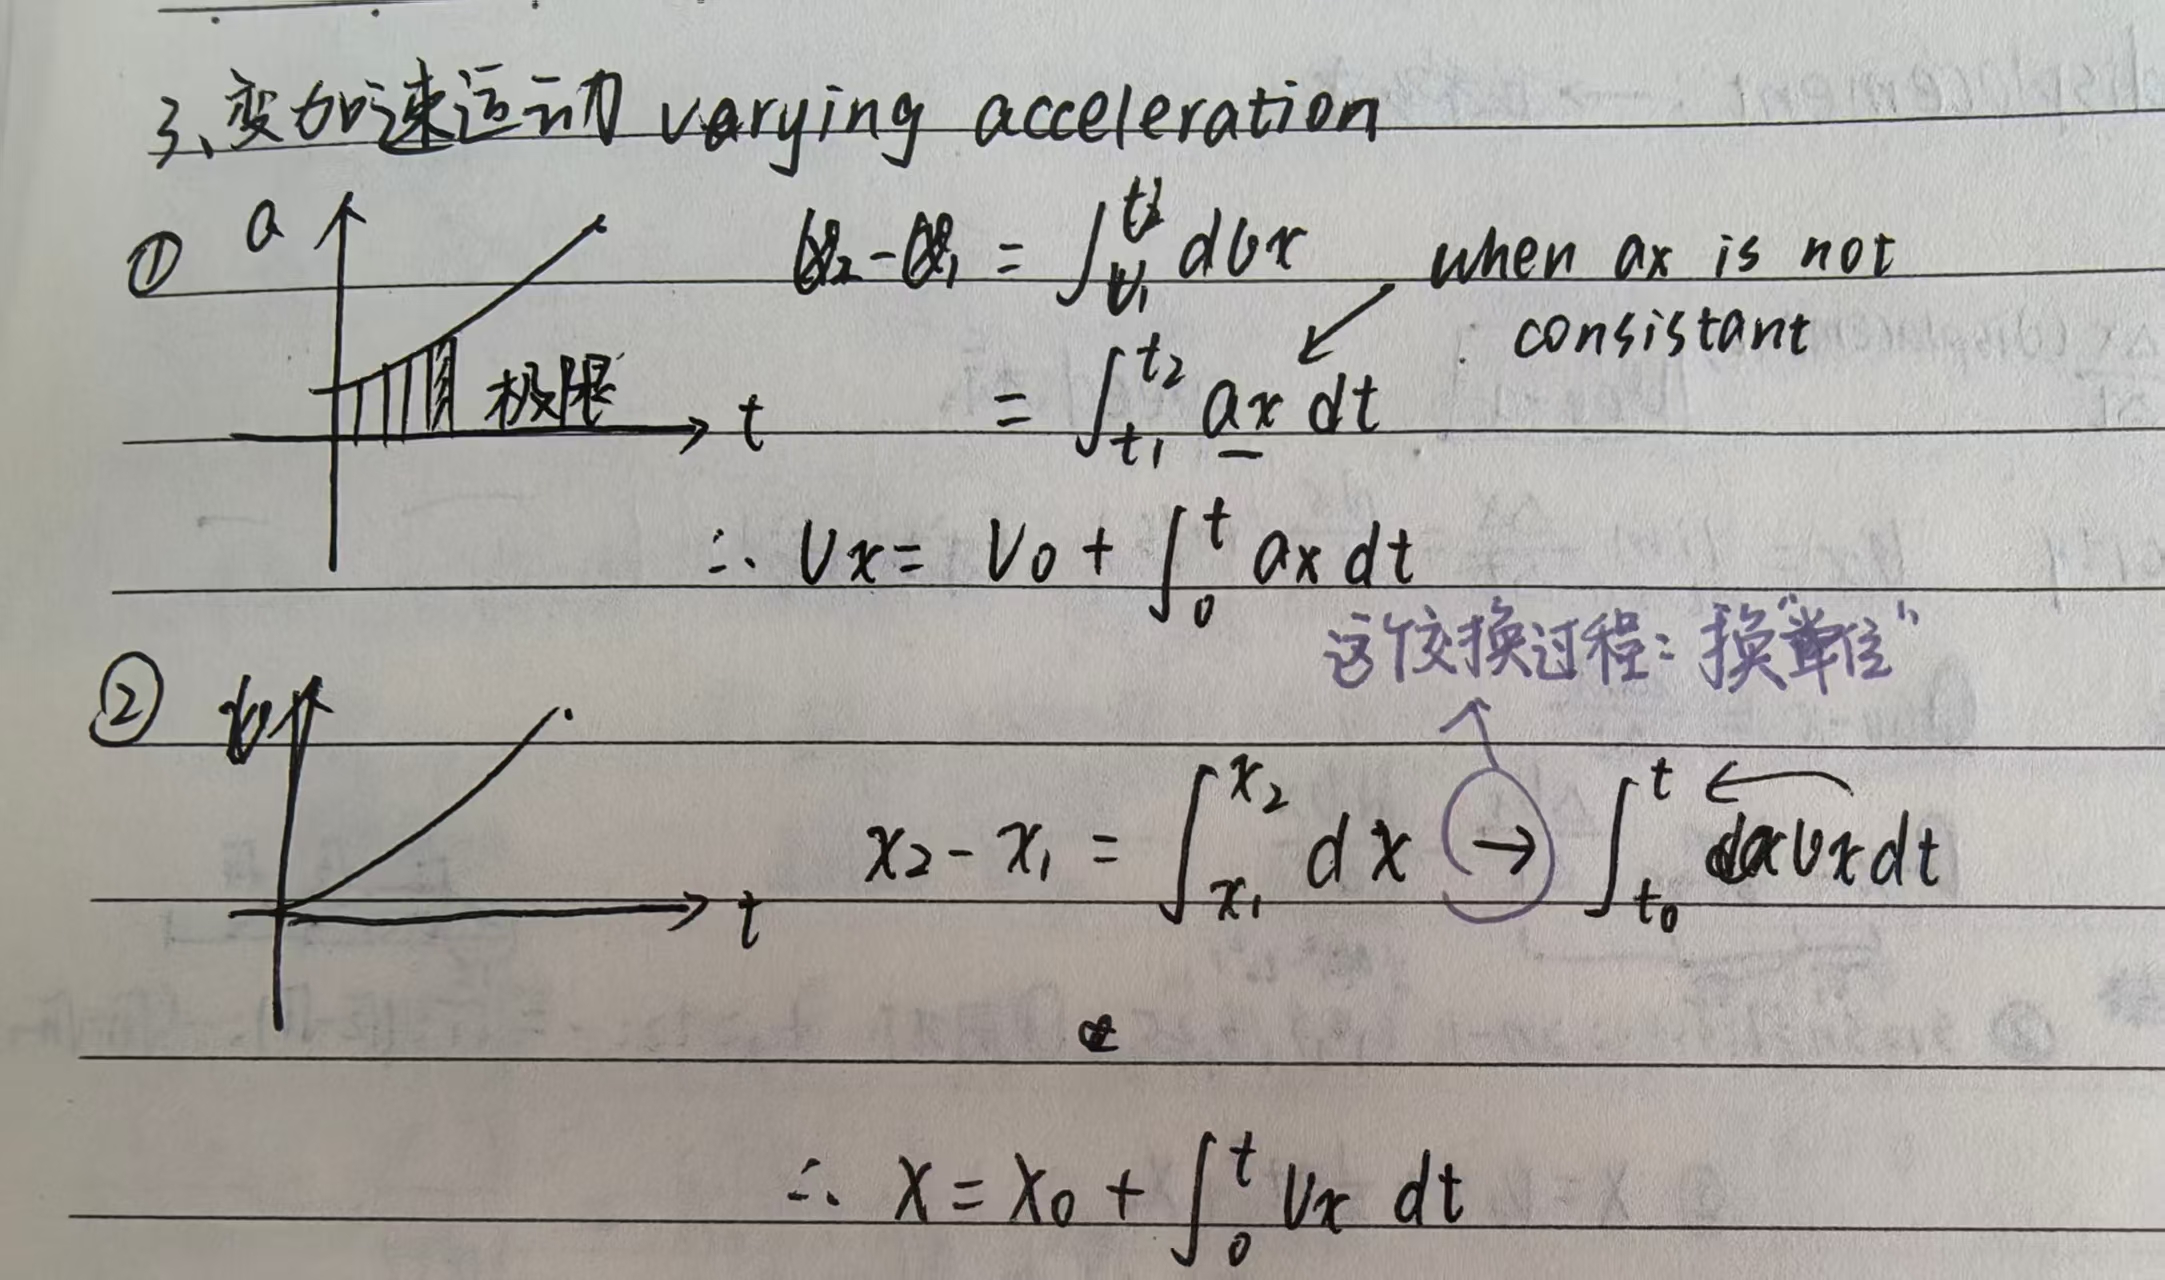 3、变加速运动 varying acceleration
① a v₂-v₁ = ∫_{v₁}^{v₂} dvx when ax is not
consistant
极限 t = ∫_{t₁}^{t₂} ax dt
∴ vx = v₀ + ∫_0^t ax dt
这个变换过程：换“单位”
②
x₂ - x₁ = ∫_{x₁}^{x₂} dx → ∫_{t₀}^{t} vx dt
t
∴ x = x₀ + ∫_0^t vx dt